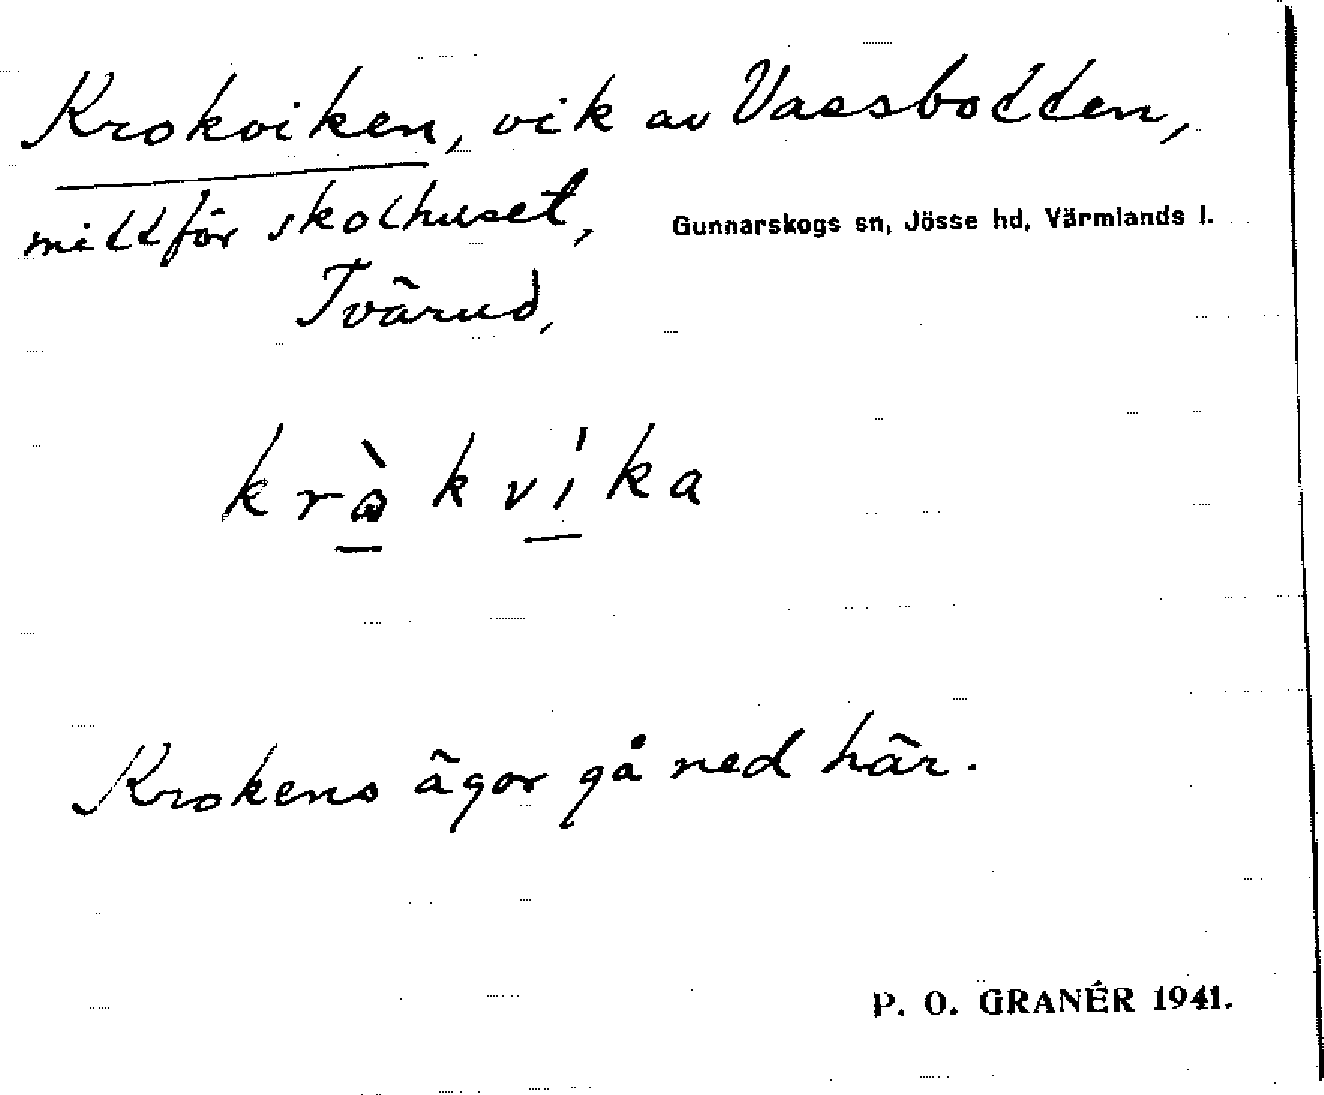 Krokviken, vik av Vassbotten,
mittför skolhuset,
Gunnarskogs sn, Jösse hd, Värmlands l.
Tvärud,
kràkvíka
Krokens ägor gå ned här.
P. O. GRANÉR 1941.